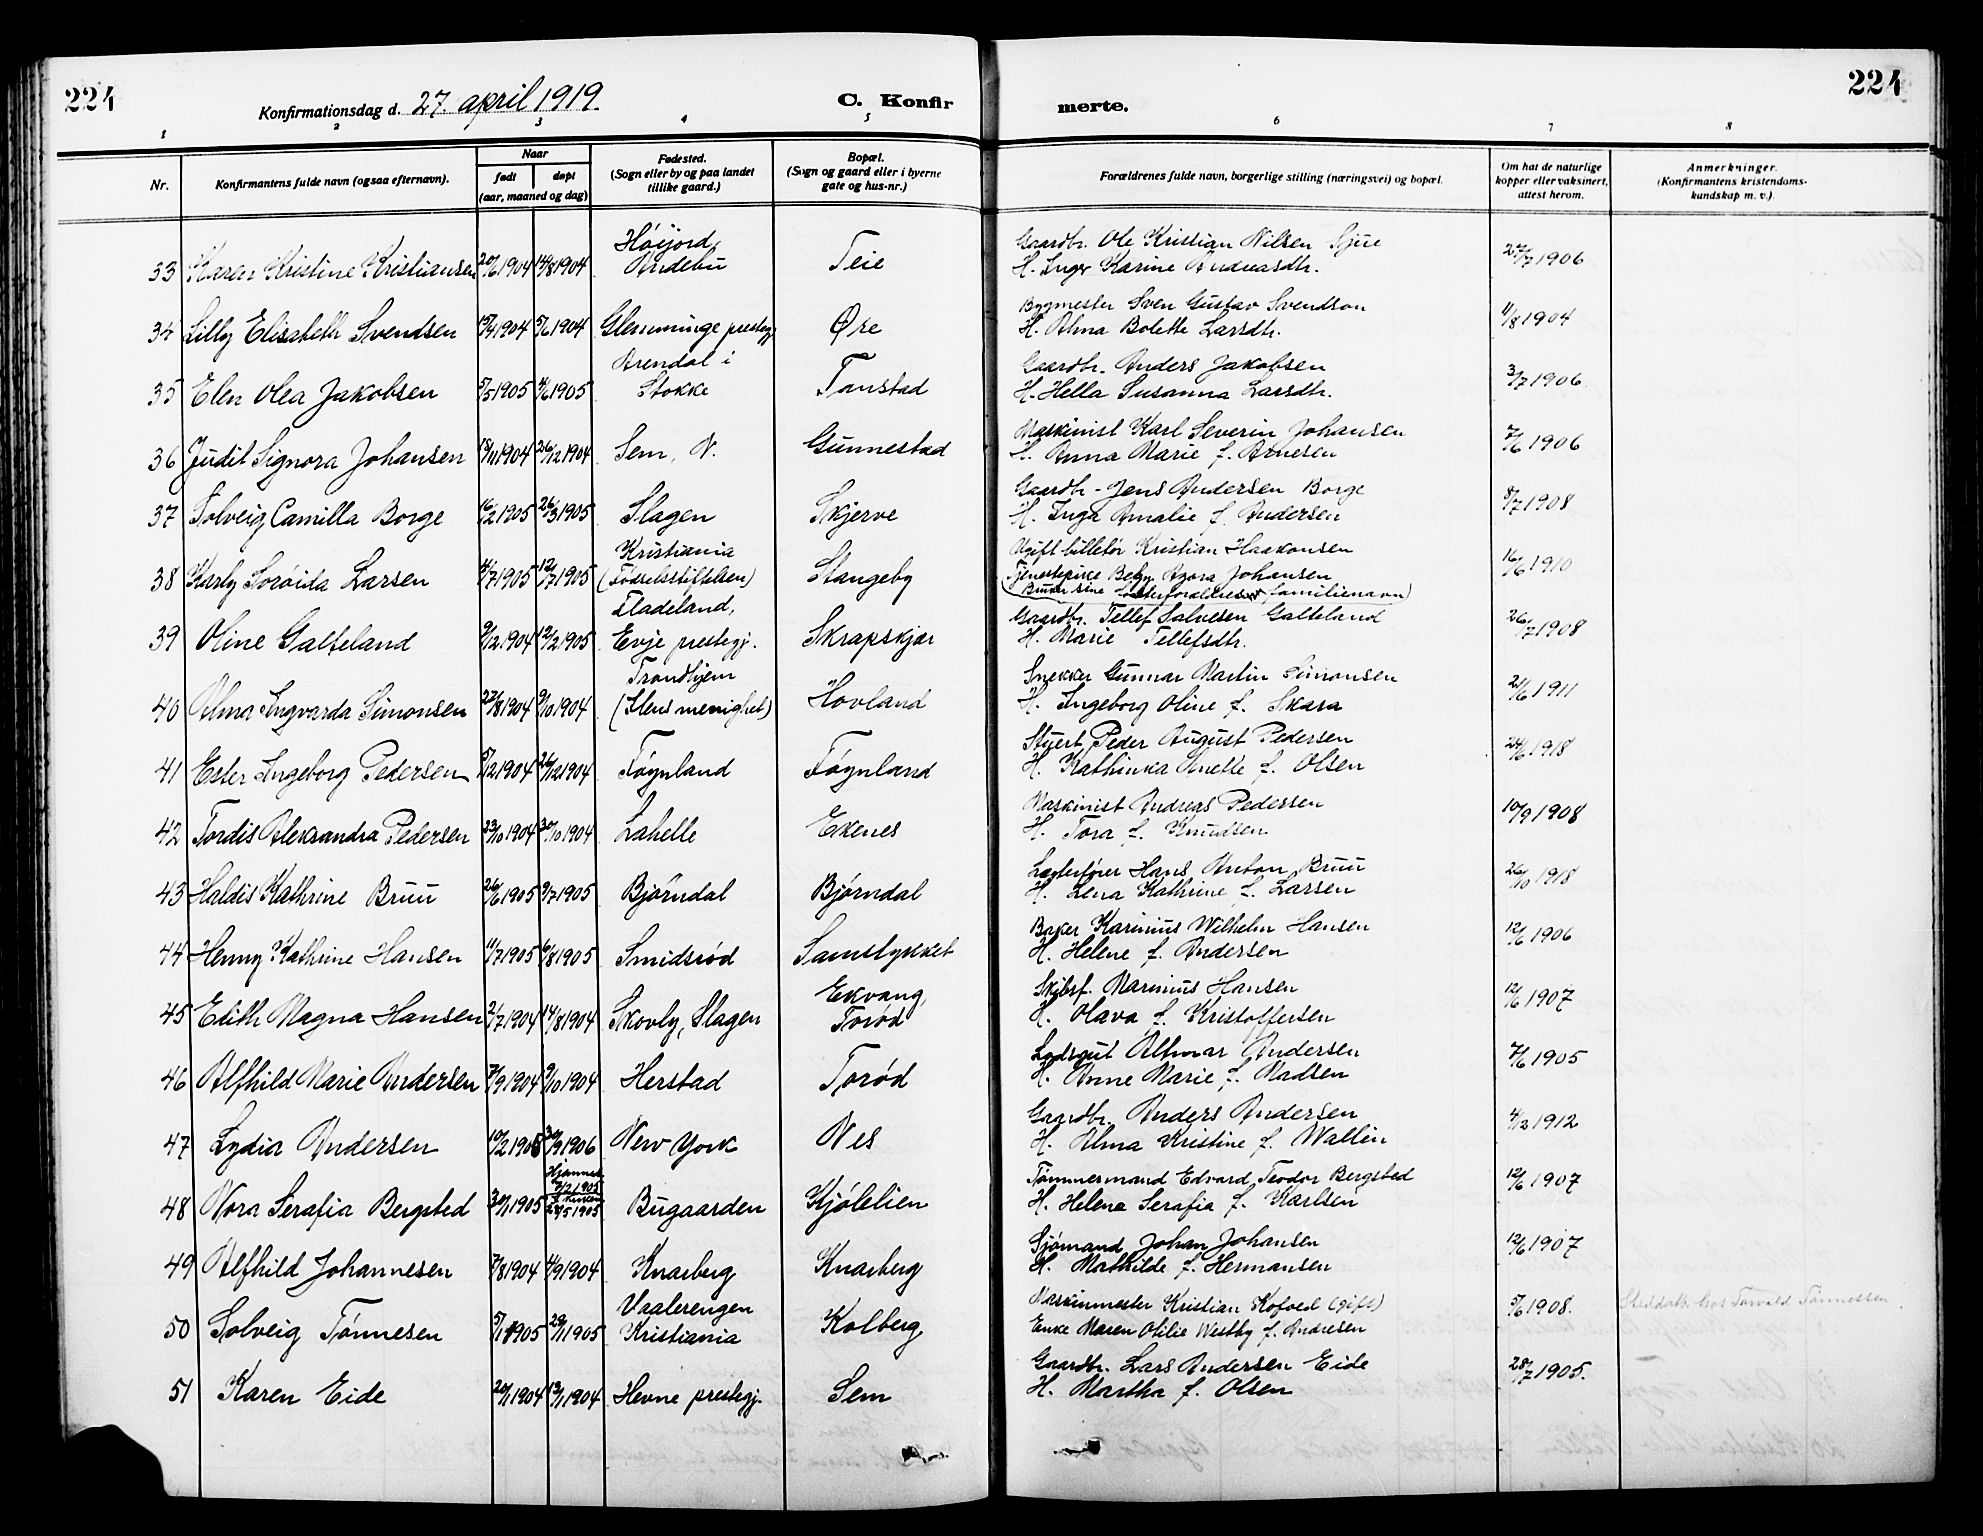 224
Konfirmationsdag d. 27. april 1919.
C. Konfir
merte.
224
1 2 3 4 5 6 7 8
Nr.
Konfirmantens fulde navn (ogsaa efternavn).
Naar
født
døpt
(aar, maaned og dag)
Fødested.
(Sogn eller by og paa landet
tillike gaard.)
Bopæl.
(Sogn og gaard eller i byerne
gate og hus-nr.)
Forældrenes fulde navn, borgerlige stilling (næringsvei) og bopæl.
Om hat de naturlige
kopper eller vaksinert,
attest herom.
Anmerkninger.
(Konfirmantens kristendoms-
kundskap m. v.).
Høijord, Gaardbr. Ole Kristian Nilsen
33 Karen Kristine Kristiansen 20/6 1904 14/8 1904 Andebu Teie H. Inger Karine Andreasdtr. 27/7 1906
Bygmester Sven Gustav Svendson
34 Lilly Elisabeth Svendsen 15/4 1904 5/6 1904 Glemminge prestegj Øre H. Alma Bolette Larsdtr. 11/8 1904
Arendal i Gaardbr. Anders Jakobsen
35 Elen Olea Jakobsen 5/5 1905 4/6 1905 Stokke Tanstad H. Hella Susanna Larsdtr. 3/7 1906
Maskinist Karl Severin Johansen
36 Judit Signora Johansen 18/11 1904 26/12 1904 Sem, N. Gunnestad H. Anna Marie f. Arnesen 7/6 1906
Gaardbr. Jens Andersen Borge
37 Solveig Camilla Borge 16/2 1905 26/3 1905 Slagen Skjerve H. Inga Amalie f. Andersen 8/7 1908
Kristiania Ugift billetør Kristian Haakonsen
38 Karly Soröida Larsen 4/7 1905 12/7 1905 (Fødselsstiftelsen) Stangeby Tjenestepike Johansen 16/6 1910
(Bruker sine fosterforældres familienavn)
Fladeland, Gaardbr. Tellef Salvesen Galteland
39 Oline Galteland 9/12 1904 12/2 1905 Evje prestegj. Skrapskjær H. Marie Tellefsdtr. 26/7 1908
Trondhjem Snekker Gunnar Martin Simonsen
40 Alma Ingvarda Simonsen 27/8 1904 9/10 1904 (Ilens menighet) Hovland H. Ingeborg Oline f. Skara 21/6 1911
Stuert Peder August Pedersen
41 Ester Ingeborg Pedersen 5/12 1904 26/12 1904 Føynland Føynland H. Kathinka Anette f. Olsen 24/6 1918
Maskinist Andreas Pedersen
42 Tordis Aleksandra Pedersen 23/10 1904 30/10 1904 Labelle Ekenes H. Tora f. Knudsen 10/9 1908
Lægterfører Hans Anton Bruu
43 Haldis Kathrine Bruu 26/6 1905 9/7 1905 Bjørndal Bjørndal H. Lena Kathrine f. Larsen 26/10 1918
Baker Karinius Wilhelm Hansen
44 Henny Kathrine Hansen 11/7 1905 6/8 1905 Smidsrød Samstykket H. Helene f. Andersen 12/6 1906
Ekvang, Skibsf. Marinius Hansen
45 Edith Magna Hansen 2/7 1904 14/8 1904 Skovly, Slagen Torød H. Olava f. Kristoffersen 12/6 1907
Andersen
46 Alfhild Marie Andersen 7/9 1904 9/10 1904 Herstad Torød H. Anne Marie f. Madsen 7/6 1905
Gaardbr. Anders Andersen
47 Lydia Andersen 10/2 1905 30/9 1906 New York Nes H. Alma Kristine f. Wallin 4/12 1912
Hjemmed. Tømmermand Edvard Teodor Bergsted
48 Nora Serafia Bergsted 30/1 1905 3/2 1905 i kirken 28/5 1905 Bugaarden Kjølelien H. Helene Serafia f. Karlsen 12/6 1907
Sjømand Johan Johansen
49 Alfhild Johannesen 7/8 1904 4/9 1904 Knarberg Knarberg H. Mathilde f. Hermansen 12/6 1907
Vaalerengen Maskinmester Kristian Kofoed (gift) Steddatter hos Torvald Tønnessen
50 Solveig Tønnesen 5/1 1905 29/1 1905 Kristiania Kolberg Enke Maren Otilie Westby f. Andresen 5/6 1908.
Gaardbr. Lars Andersen Eide
51 Karen Eide 20/1 1904 13/1 1904 Hevne prestegj. Sem H. Martha f. Olsen 28/7 1905.